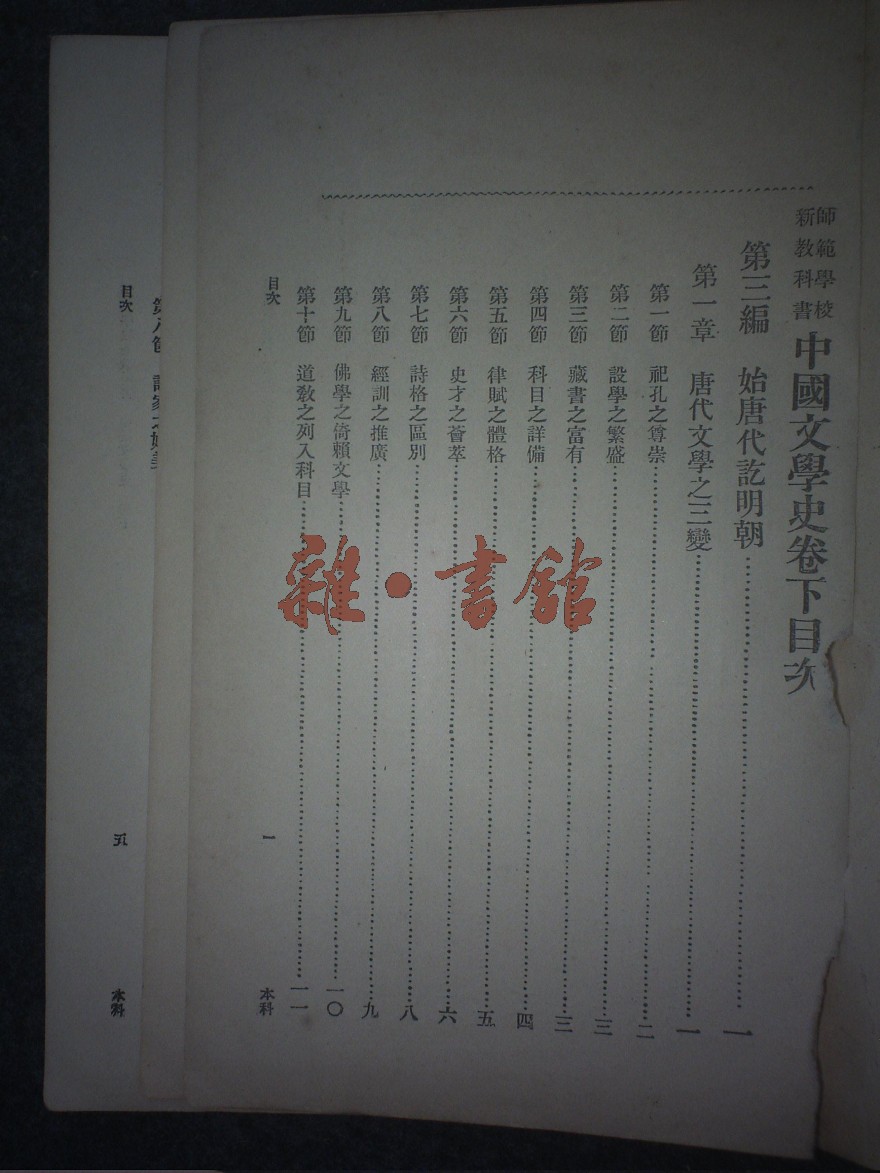 師範學校
新教科書
中國文學史卷下目次
第三編 始唐代訖明朝 一
第一章 唐代文學之三變 一
第一節 祀孔之尊崇 二
第二節 設學之繁盛 三
第三節 藏書之富有 三
第四節 科目之詳備 四
第五節 律賦之體格 五
第六節 史才之薈萃 六
第七節 詩格之區別 八
第八節 經訓之推廣 九
第九節 佛學之倚賴文學 一〇
第十節 道教之列入科目 一一
目次 一 本科
雜·書館
第八節
目次 五 本科